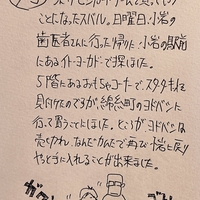 ことになったスバル。日曜日、小岩の
歯医者さんに行った帰り、小岩の駅前
にあるイトーヨーカドーで探しました。
5階にあるおもちゃコーナーで、スタタキは
見付けたのですが、綿糸町のヨドバシに
行って買うことにしました。ところがヨドバシは
売り切れ、なんだかんだで再び小岩に戻り
やっと手に入れることが出来ました。